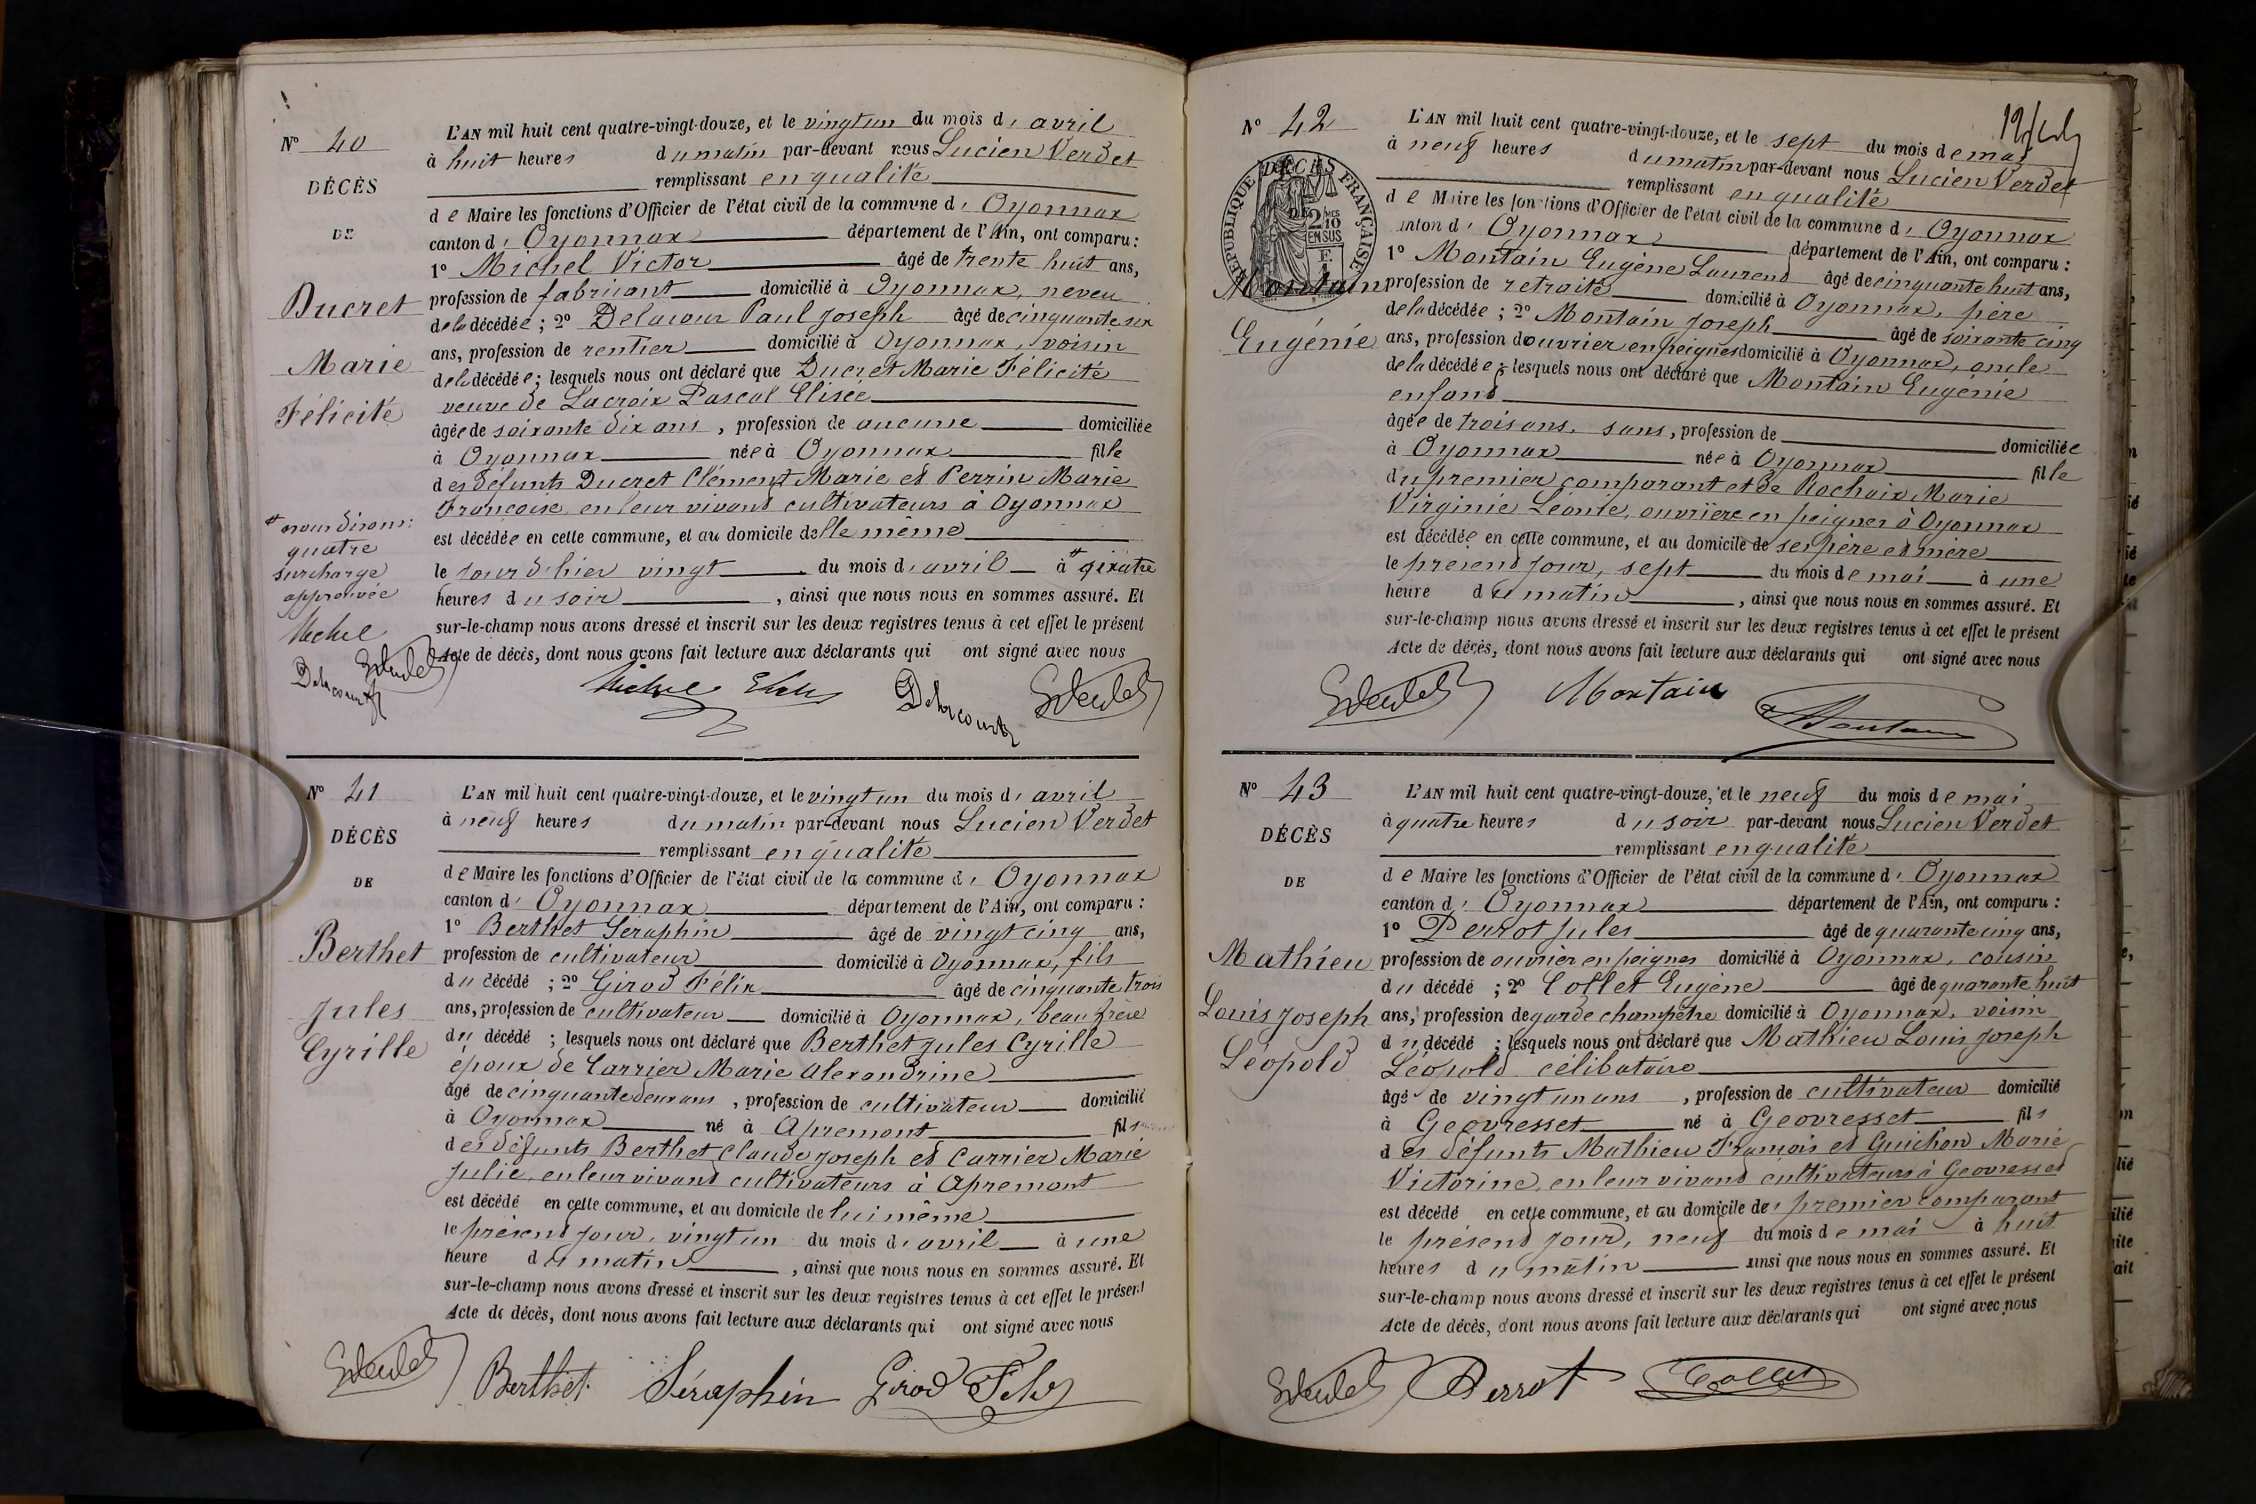 N° 40
DÉCÈS
DE
Ducret
Marie
Félicité
L'AN mil huit cent quatre-vingt-douze, et le vingt un du mois d' avril
à huit heures du matin par-devant nous Lucien Verdet
remplissant en qualité
de Maire les fonctions d'Officier de l'état civil de la commune d' Oyonnax
canton d' Oyonnax département de l'Ain, ont comparu :
1° Michel Victor âgé de trente huit ans,
profession de fabricant domicilié à Oyonnax, neveu
de la décédée ; 2° Delacour Paul Joseph âgé de cinquante six
ans, profession de rentier domicilié à Oyonnax, voisin
de la décédée ; lesquels nous ont déclaré que Ducret Marie Félicité
veuve de Lacroix Pascal Elisée
âgée de soixante dix ans, profession de aucune domiciliée
à Oyonnax née à Oyonnax fille
des défunts Ducret Clément Marie et Perrin Marie
Françoise, en leur vivant cultivateurs à Oyonnax
est décédée en cette commune, et au domicile d'elle même
le jour d'hier vingt du mois d' avril à quatre
heures du soir, ainsi que nous nous en sommes assuré. Et
sur-le-champ nous avons dressé et inscrit sur les deux registres tenus à cet effet le présent
Acte de décès, dont nous avons fait lecture aux déclarants qui ont signé avec nous
nous disons :
quatre
surcharge
approuvée
Michel
Delacourt
Michel
Delacourt
N° 41
DÉCÈS
DE
Berthet
Jules
Cyrille
L'AN mil huit cent quatre-vingt-douze, et le vingt un du mois d' avril
à neuf heures du matin par-devant nous Lucien Verdet
remplissant en qualité
de Maire les fonctions d'Officier de l'état civil de la commune d' Oyonnax
canton d' Oyonnax département de l'Ain, ont comparu :
1° Berthet Séraphin âgé de vingt cinq ans,
profession de cultivateur domicilié à Oyonnax, fils
du décédé ; 2° Girod Félix âgé de cinquante trois
ans, profession de cultivateur domicilié à Oyonnax, beau frère
du décédé ; lesquels nous ont déclaré que Berthet Jules Cyrille
époux de Carrier Marie Alexandrine
âgé de cinquante deux ans, profession de cultivateur domicilié
à Oyonnax né à Apremont fils
des défunts Berthet Claude Joseph et Carrier Marie
Julie, en leur vivant cultivateurs à Apremont
est décédé en cette commune, et au domicile de lui même
le présent jour, vingt un du mois d' avril à une
heure du matin, ainsi que nous nous en sommes assuré. Et
sur-le-champ nous avons dressé et inscrit sur les deux registres tenus à cet effet le présent
Acte de décès, dont nous avons fait lecture aux déclarants qui ont signé avec nous
Berthet Séraphin Girod Félix
N° 42
DÉCÈS
RÉPUBLIQUE FRANÇAISE
2 MES
10
EN SUS
Montain
Eugénie
L'AN mil huit cent quatre-vingt-douze, et le sept du mois de mai
à neuf heures du matin par-devant nous Lucien Verdet
remplissant en qualité
de Maire les fonctions d'Officier de l'état civil de la commune d' Oyonnax
canton d' Oyonnax département de l'Ain, ont comparu :
1° Montain Eugène Laurend âgé de cinquante huit ans,
profession de retraité domicilié à Oyonnax, père
de la décédée ; 2° Montain Joseph âgé de soixante cinq
ans, profession d'ouvrier en peignes domicilié à Oyonnax, oncle
de la décédée ; lesquels nous ont déclaré que Montain Eugénie
enfant
âgée de trois ans, sans, profession de domiciliée
à Oyonnax née à Oyonnax fille
du premier comparant et de Rochaix Marie
Virginie Léonie, ouvrière en peignes à Oyonnax
est décédée en cette commune, et au domicile de ses père et mère
le présent jour, sept du mois de mai à une
heure du matin, ainsi que nous nous en sommes assuré. Et
sur-le-champ nous avons dressé et inscrit sur les deux registres tenus à cet effet le présent
Acte de décès, dont nous avons fait lecture aux déclarants qui ont signé avec nous
Montain
Montain
N° 43
DÉCÈS
DE
Mathieu
Louis Joseph
Léopold
L'AN mil huit cent quatre-vingt-douze, et le neuf du mois de mai
à quatre heures du soir par-devant nous Lucien Verdet
remplissant en qualité
de Maire les fonctions d'Officier de l'état civil de la commune d' Oyonnax
canton d' Oyonnax département de l'Ain, ont comparu :
1° Perrot Jules âgé de quarante cinq ans,
profession de ouvrier en peignes domicilié à Oyonnax, cousin
du décédé ; 2° Collet Eugène âgé de quarante huit
ans, profession de garde champêtre domicilié à Oyonnax, voisin
du décédé ; lesquels nous ont déclaré que Mathieu Louis Joseph
Léopold célibataire
âgé de vingt un ans, profession de cultivateur domicilié
à Geovresset né à Geovresset fils
des défunts Mathieu François et Guichon Marie
Victorine, en leur vivant cultivateurs à Geovresset
est décédé en cette commune, et au domicile du premier comparant
le présent jour, neuf du mois de mai à huit
heures du matin ainsi que nous nous en sommes assuré. Et
sur-le-champ nous avons dressé et inscrit sur les deux registres tenus à cet effet le présent
Acte de décès, dont nous avons fait lecture aux déclarants qui ont signé avec nous
Perrot Collet